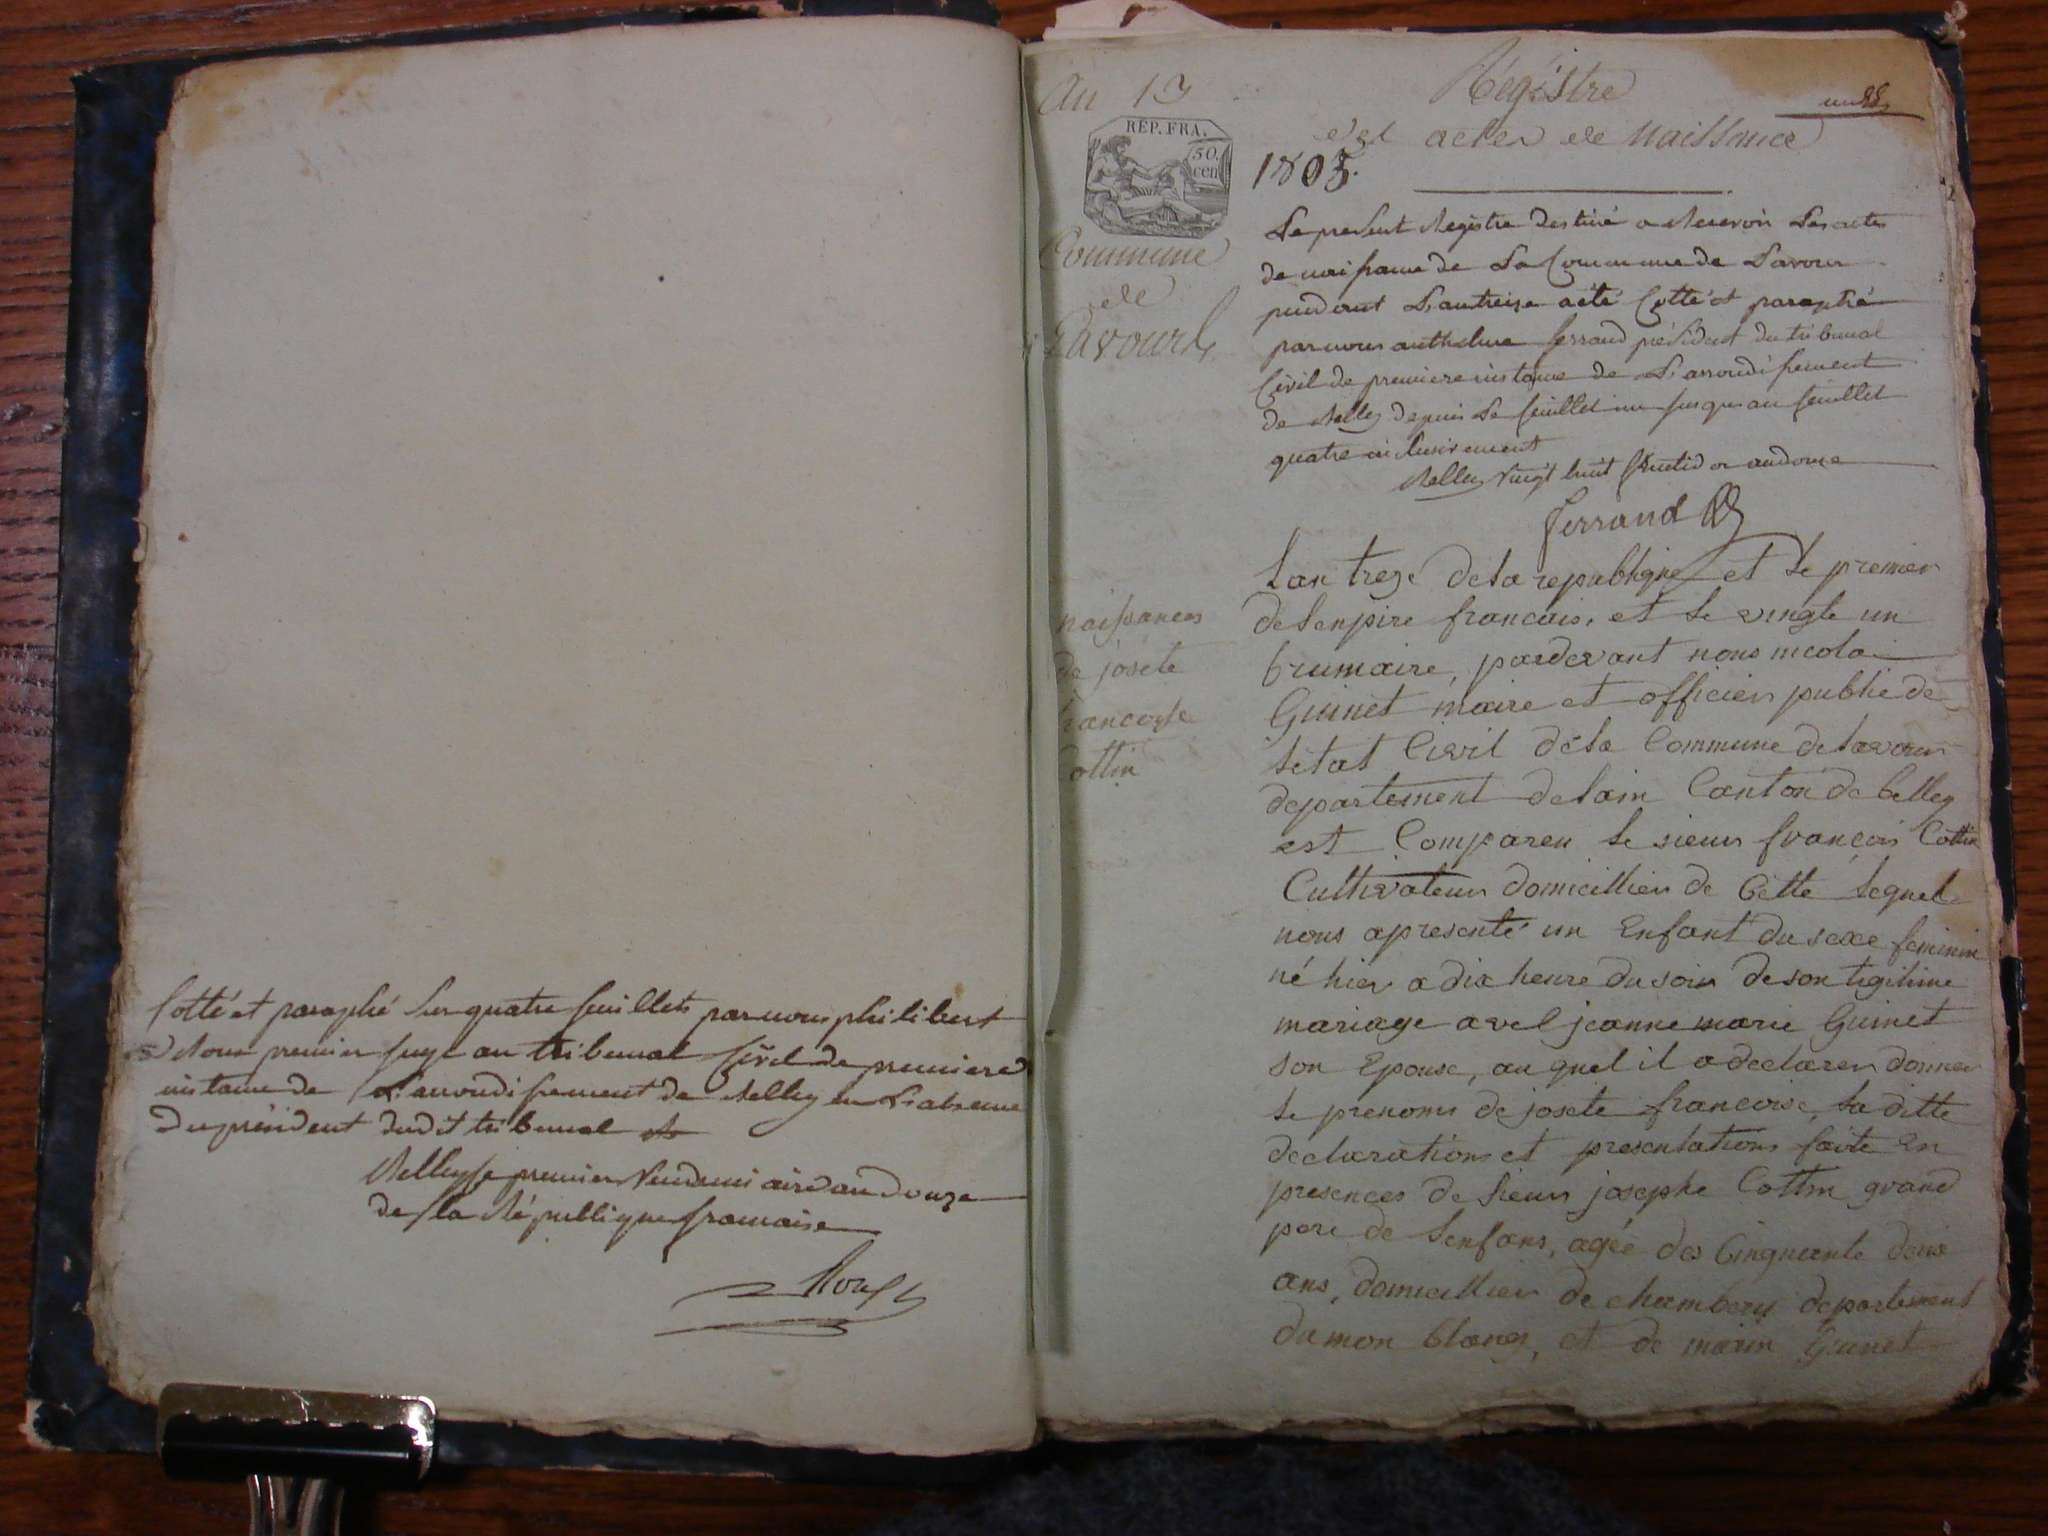 Cotté et paraphé sur quatre feuillets par nous philibert
premier juge au tribunal Civil de premiere
instance de L'arrondissement de Belley en L'absence
Du président dudit tribunal
Belley le premier Vendemiaire an Douze
de la République francaise
An 13
RÉP. FRA.
50.
cen
Commune
de
Lavours
Régistre
des actes de Naissance
1805.
Le present Registre destiné a Recevoir Les actes
de naissance de La Commune de Lavour
pendant L'an treize a été Cotté et paraphé
par nous anthelme ferrand président du tribunal
Civil de premiere instance de L'arrondissement
de Belley depuis Le feuillet un jusques au feuillet
quatre inclusivement
Belley vingt huit fructidor an douze
ferrand
naissances
de josete
francoise
Cottin
Lan treze de la republique et le premier
de lenpire francais, et le vingte un
brumaire, pardevant nous nicola
Guinet maire et officier public de
letat Civil de la Commune de lavour
departement de lain Canton de belley
est Compareu le sieur francois Cottin
Cultivateur domicillier de Cette lequel
nous apresenté un Enfant du sexe feminin
né hier a dix heure du soir de son legitime
mariage avel jeanne marie Guinet
son Epouse, au quel il a declarer donner
le prenoms de josete francoise, la ditte
declarations et presentations faite En
presences de sieur josephe Cottin grand
pere de lenfans, agée des Cinquante deux
ans, domicillier de chambery departement
du mon blang, et de marin Guinet